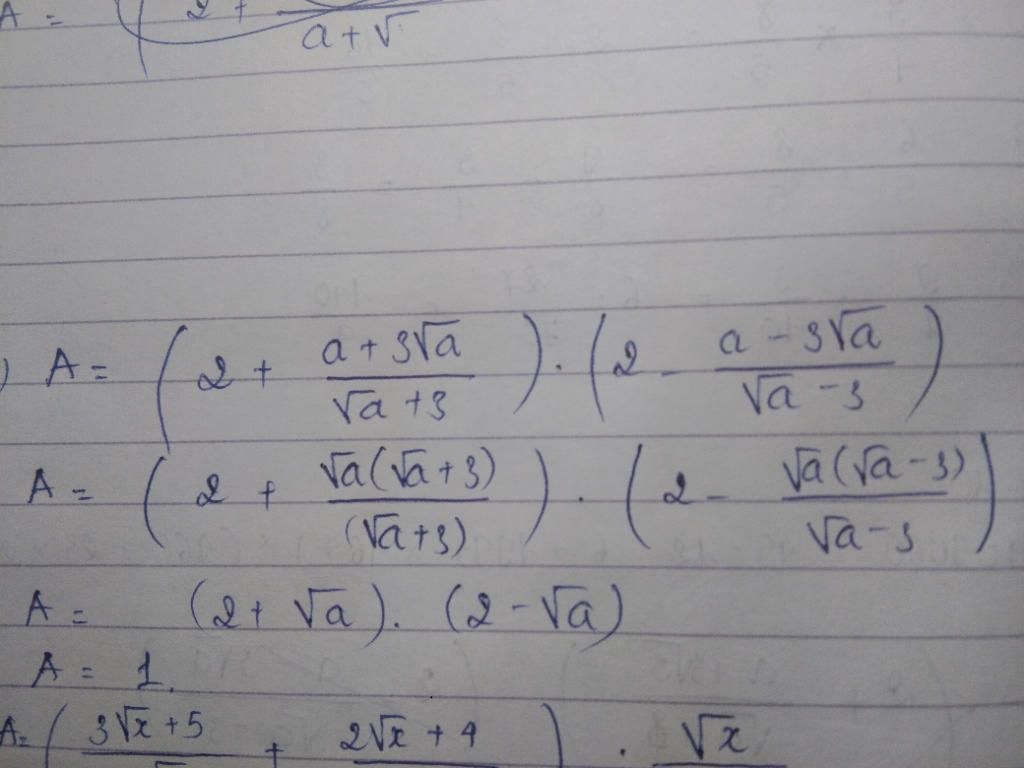 A = ( 2 +
a + √
) A = ( 2 + (a + 3√a)/(√a + 3) ) . ( 2 - (a - 3√a)/(√a - 3) )
A = ( 2 + √a(√a + 3)/(√a + 3) ) . ( 2 - √a(√a - 3)/(√a - 3) )
A = (2 + √a) . (2 - √a)
A = 1.
A = ( (3√x + 5)/ + (2√x + 4)/ ) . √x/